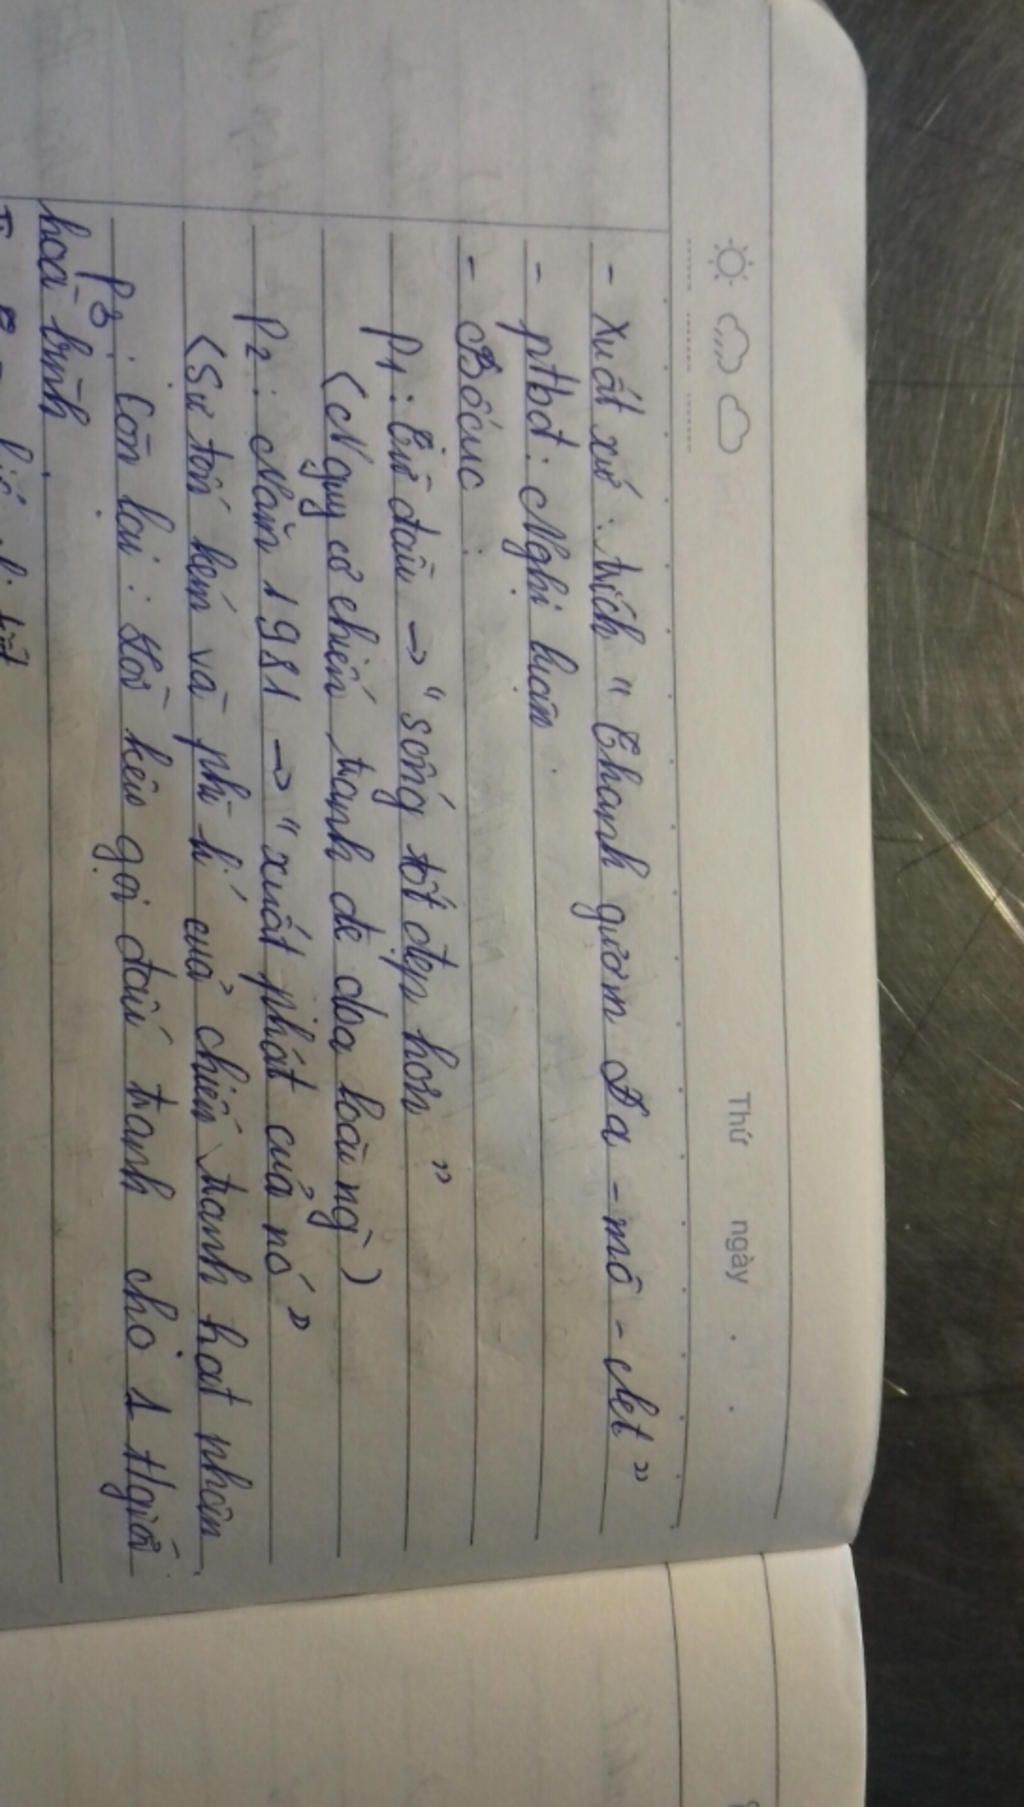 Thứ ngày
- Xuất xứ: trích "Thanh gươm Đa - mô - clet"
- ptbđ: Nghị luận
- Bố cục:
P1: Từ đầu → "sống tốt đẹp hơn"
(Nguy cơ chiến tranh đe doạ loài ng)
P2: Năm 1981 → "xuất phát của nó"
(Sự tốn kém và phi lí của chiến tranh hạt nhân
P3: Còn lại: Lời kêu gọi đấu tranh cho 1 thgiới
hoà bình.